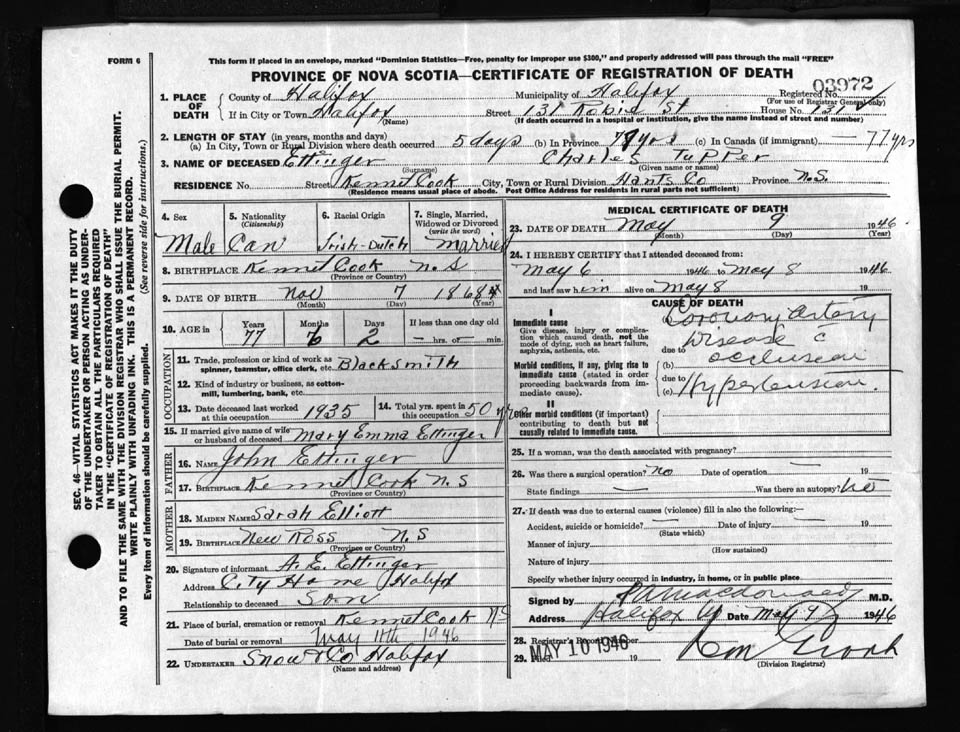 FORM 6
This form if placed in an envelope, marked "Dominion Statistics—Free, penalty for improper use $300," and properly addressed will pass through the mail "FREE"
PROVINCE OF NOVA SCOTIA—CERTIFICATE OF REGISTRATION OF DEATH
03972
1. PLACE OF DEATH
County of Halifax Municipality of Halifax Registered No.
(For use of Registrar General only)
If in City or Town Halifax Street 131 Robie St House No. 131
(Name) (If death occurred in a hospital or institution, give the name instead of street and number)
2. LENGTH OF STAY (in years, months and days)
(a) In City, Town or Rural Division where death occurred 5 days (b) in Province 77 yrs (c) in Canada (if immigrant) —77 yrs
3. NAME OF DECEASED Ettinger Charles Tupper
(Surname) (Given name or names)
RESIDENCE No. Street Kennetcook City, Town or Rural Division Hants Co Province N.S.
(Residence means usual place of abode. Post Office Address for residents in rural parts not sufficient)
4. Sex
Male
5. Nationality
(Citizenship)
Can
6. Racial Origin
Irish-Dutch
7. Single, Married, Widowed or Divorced
(write the word)
Married
8. BIRTHPLACE Kennet Cook N.S
(Province or Country)
9. DATE OF BIRTH Nov 7 1868
(Month) (Day) (Year)
10. AGE in
Years Months Days If less than one day old
77 6 2 — hrs. or — min.
OCCUPATION
11. Trade, profession or kind of work as spinner, teamster, office clerk, etc. Blacksmith
12. Kind of industry or business, as cotton-mill, lumbering, bank, etc.
13. Date deceased last worked at this occupation 1935
14. Total yrs. spent in this occupation 50 years
15. If married give name of wife or husband of deceased Mary Emma Ettinger
FATHER
16. NAME John Ettinger
17. BIRTHPLACE Kennet Cook N.S
(Province or Country)
MOTHER
18. MAIDEN NAME Sarah Elliott
19. BIRTHPLACE New Ross N.S
(Province or Country)
20. Signature of informant A. E. Ettinger
Address City Home Halifax
Relationship to deceased Son
21. Place of burial, cremation or removal Kennetcook NS
Date of burial or removal May 11th 1946
22. UNDERTAKER Snow & Co Halifax
(Name and address)
MEDICAL CERTIFICATE OF DEATH
23. DATE OF DEATH May 9 1946
(Month) (Day) (Year)
24. I HEREBY CERTIFY that I attended deceased from:
May 6 1946 to May 8 1946
and last saw him alive on May 8 19
CAUSE OF DEATH
I
Immediate cause
Give disease, injury or complication which caused death, not the mode of dying, such as heart failure, asphyxia, asthenia, etc.
(a) Coronary artery
Disease c
due to
Morbid conditions, if any, giving rise to immediate cause (stated in order proceeding backwards from immediate cause).
(b) occlusion
due to
(c) Hypertension.
II
Other morbid conditions (if important) contributing to death but not causally related to immediate cause.
25. If a woman, was the death associated with pregnancy?
26. Was there a surgical operation? no Date of operation — 19
State findings — Was there an autopsy? no
27. If death was due to external causes (violence) fill in also the following:—
Accident, suicide or homicide? — Date of injury — 19
(State which)
Manner of injury
(How sustained)
Nature of injury
Specify whether injury occurred in industry, in home, or in public place
Signed by Macdonald M.D.
Address Halifax Date May 9 1946
28. Registrar's Record Number
29. Filed 19
MAY 10 1946
(Division Registrar)
SEC. 46—VITAL STATISTICS ACT MAKES IT THE DUTY
OF THE UNDERTAKER OR PERSON ACTING AS UNDERTAKER TO OBTAIN ALL THE PARTICULARS REQUIRED
IN THE "CERTIFICATE OF REGISTRATION OF DEATH"
AND TO FILE THE SAME WITH THE DIVISION REGISTRAR WHO SHALL ISSUE THE BURIAL PERMIT.
WRITE PLAINLY WITH UNFADING INK. THIS IS A PERMANENT RECORD.
Every item of information should be carefully supplied. (See reverse side for instructions.)